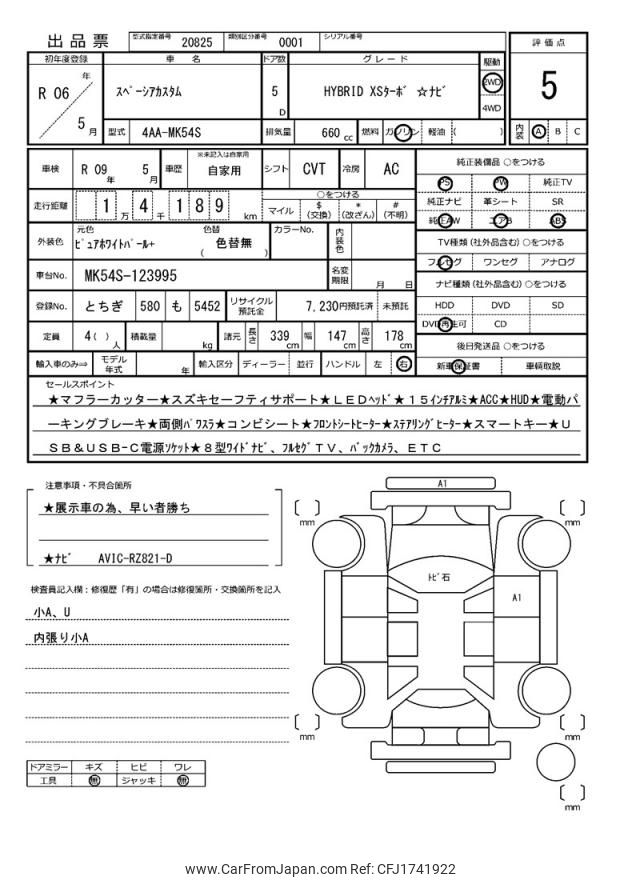 出品票 型式指定番号 20825 類別区分番号 0001 シリアル番号
初年度登録 車名 ドア数 グレード 駆動 評価点
R 06 年 5 月 スペーシアカスタム 5 D HYBRID XSターボ ☆ナビ 2WD 4WD 5
型式 4AA-MK54S 排気量 660 cc 燃料 ガソリン 軽油 ( ) 内装 A B C
車検 R 09 年 5 月 車歴 ※未記入は自家用 自家用 シフト CVT 冷房 AC 純正装備品 ○をつける
PS PW 純正TV
走行距離 1 万 4 千 1 8 9 km ○をつける マイル $(交換) *(改ざん) #(不明) 純正ナビ 革シート SR
純正AW エアB ABS
外装色 元色 ピュアホワイトパール+ 色替 ( 色替無 ) カラーNo. 内装色 TV種類(社外品含む)○をつける
フルセグ ワンセグ アナログ
車台No. MK54S-123995 名変期限 月 日 ナビ種類(社外品含む)○をつける
登録No. とちぎ 580 も 5452 リサイクル預託金 7,230円預託済 未預託 HDD DVD SD
DVD再生可 CD
定員 4( )人 積載量 kg 諸元 長さ 339 cm 幅 147 cm 高さ 178 cm 後日発送品 ○をつける
輸入車のみ⇒ モデル年式 年 輸入区分 ディーラー 並行 ハンドル 左 右 新車保証書 車輌取説
セールスポイント
★マフラーカッター★スズキセーフティサポート★LEDヘッド★15インチアルミ★ACC★HUD★電動パ
ーキングブレーキ★両側パワスラ★コンビシート★フロントシートヒーター★ステアリングヒーター★スマートキー★U
SB&USB-C電源ソケット★8型ワイドナビ、フルセグTV、バックカメラ、ETC
注意事項・不具合箇所
★展示車の為、早い者勝ち
★ナビ AVIC-RZ821-D
検査員記入欄：修復歴「有」の場合は修復箇所・交換箇所を記入
小A、U
内張り小A
ドアミラー キズ ヒビ ワレ
工具 無 ジャッキ 無
A1
トビ石
A1
mm
mm
mm
mm
mm
www.CarFromJapan.com Ref: CFJ1741922